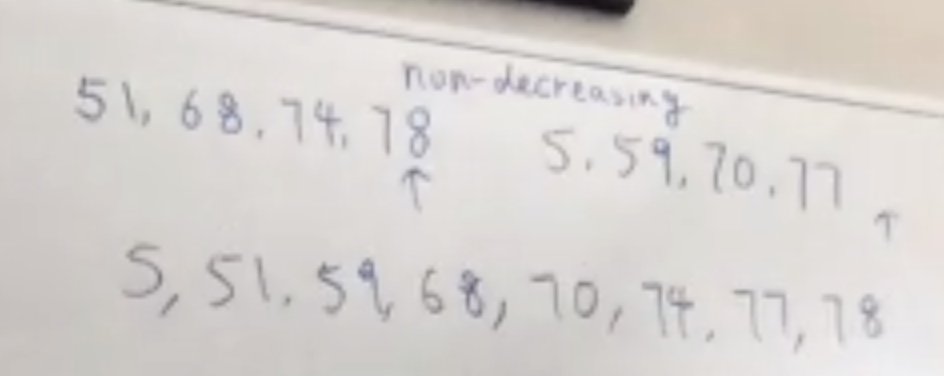 non-decreasing
51, 68, 74, 78 5, 59, 70, 77
↑ ↑
5, 51, 59, 68, 70, 74, 77, 78